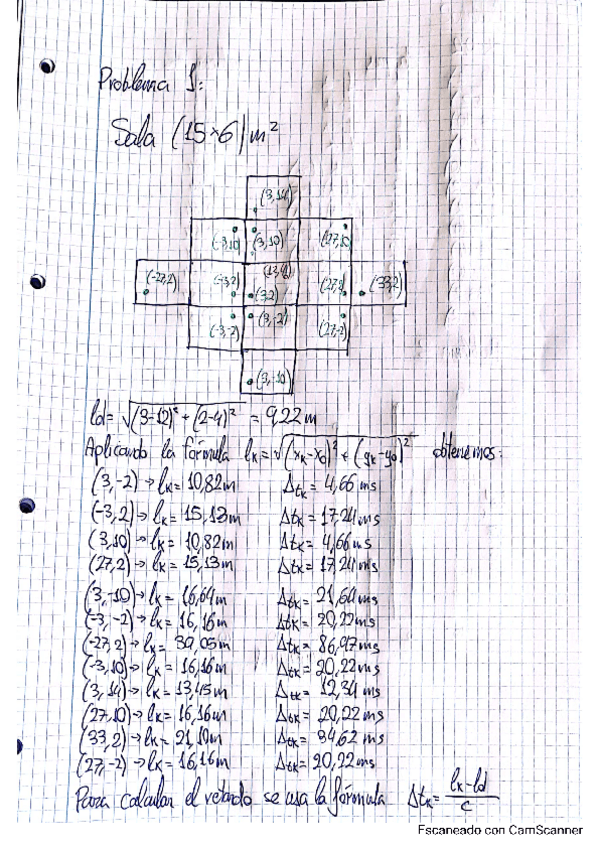 Problema 1:
Sala (15×6) m²
(3,14)
(-3,10) (3,10) (27,10)
(-27,2) (-3,2) (3,2) (27,2) (33,2)
(-3,-2) (3,-2) (27,-2)
(3,-10)
ld = √(3-12)² + (2-4)² = 9,22 m
Aplicando la fórmula lk = √(xk-x0)² + (yk-y0)² obtenemos:
(3,-2) → lk = 10,82m Δtk = 4,66 ms
(-3,2) → lk = 15,13m Δtk = 17,24ms
(3,10) → lk = 10,82m Δtk = 4,66 ms
(27,2) → lk = 15,13m Δtk = 17,24ms
(3,-10) → lk = 16,64m Δtk = 21,64ms
(-3,-2) → lk = 16,16m Δtk = 20,22ms
(-27,2) → lk = 39,05m Δtk = 86,97ms
(-3,10) → lk = 16,16m Δtk = 20,22ms
(3,14) → lk = 13,45m Δtk = 12,34 ms
(27,10) → lk = 16,16m Δtk = 20,22ms
(33,2) → lk = 21,10m Δtk = 34,62 ms
(27,-2) → lk = 16,16m Δtk = 20,22ms
Para calcular el retardo se usa la fórmula Δtk = lk-ld / c
Escaneado con CamScanner